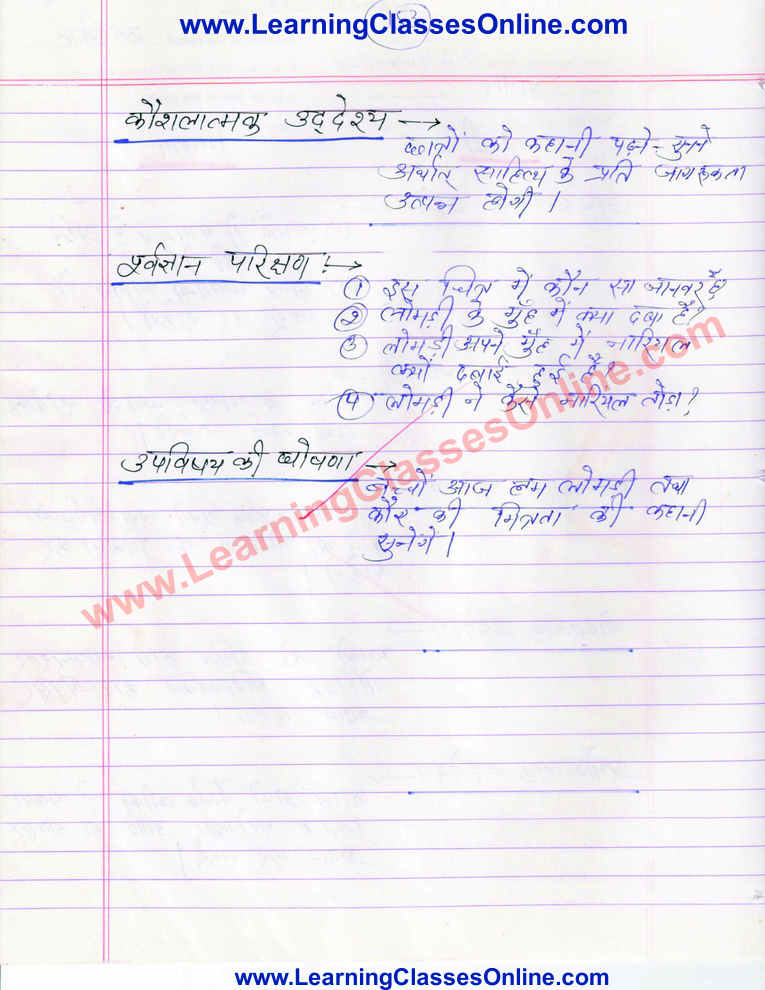 www.LearningClassesOnline.com
कौशलात्मक उद्देश्य →
छात्रों को कहानी पढ़ने - सुनने
अर्थात् साहित्य के प्रति जागरूकता
उत्पन्न होगी ।
पूर्वज्ञान परिक्षण :→
① इस चित्र में कौन सा जानवर है?
② लोमड़ी के मुँह में क्या दबा है?
③ लोमड़ी अपने मुँह में नारियल
क्यों दबाई हुई है?
④ लोमड़ी ने कैसे नारियल तोड़ा?
उपविषय की घोषणा →
बच्चों आज हम लोमड़ी तथा
की मित्रता की कहानी
सुनेगें ।
www.LearningClassesOnline.com
www.LearningClassesOnline.com